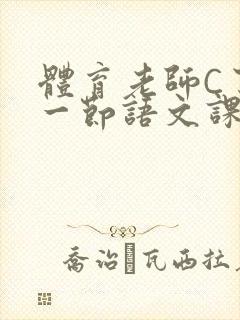 體育老師C
一節語文課
喬治 瓦西拉